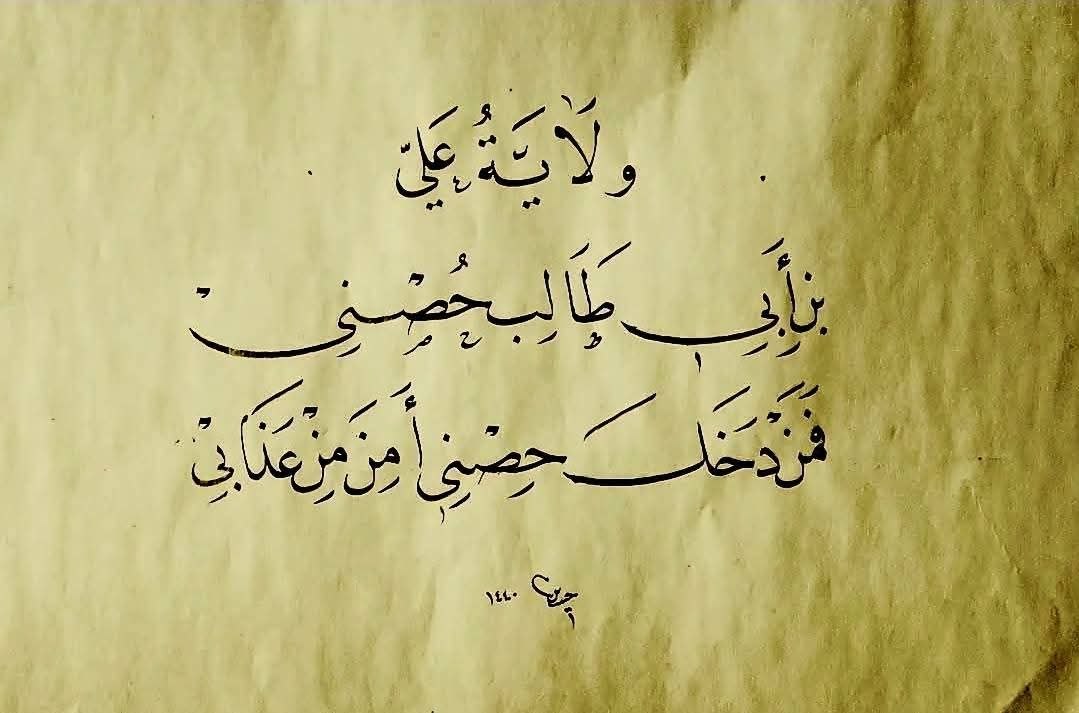 وَلَايَّةُ عَلِيّ
بنِ أَبِي طَالِب حُصْنِيْ
فَمَنْ دَخَلَ حِصْنِي أَمِنَ مِنْ عَذَابِيْ
١٤٤٠